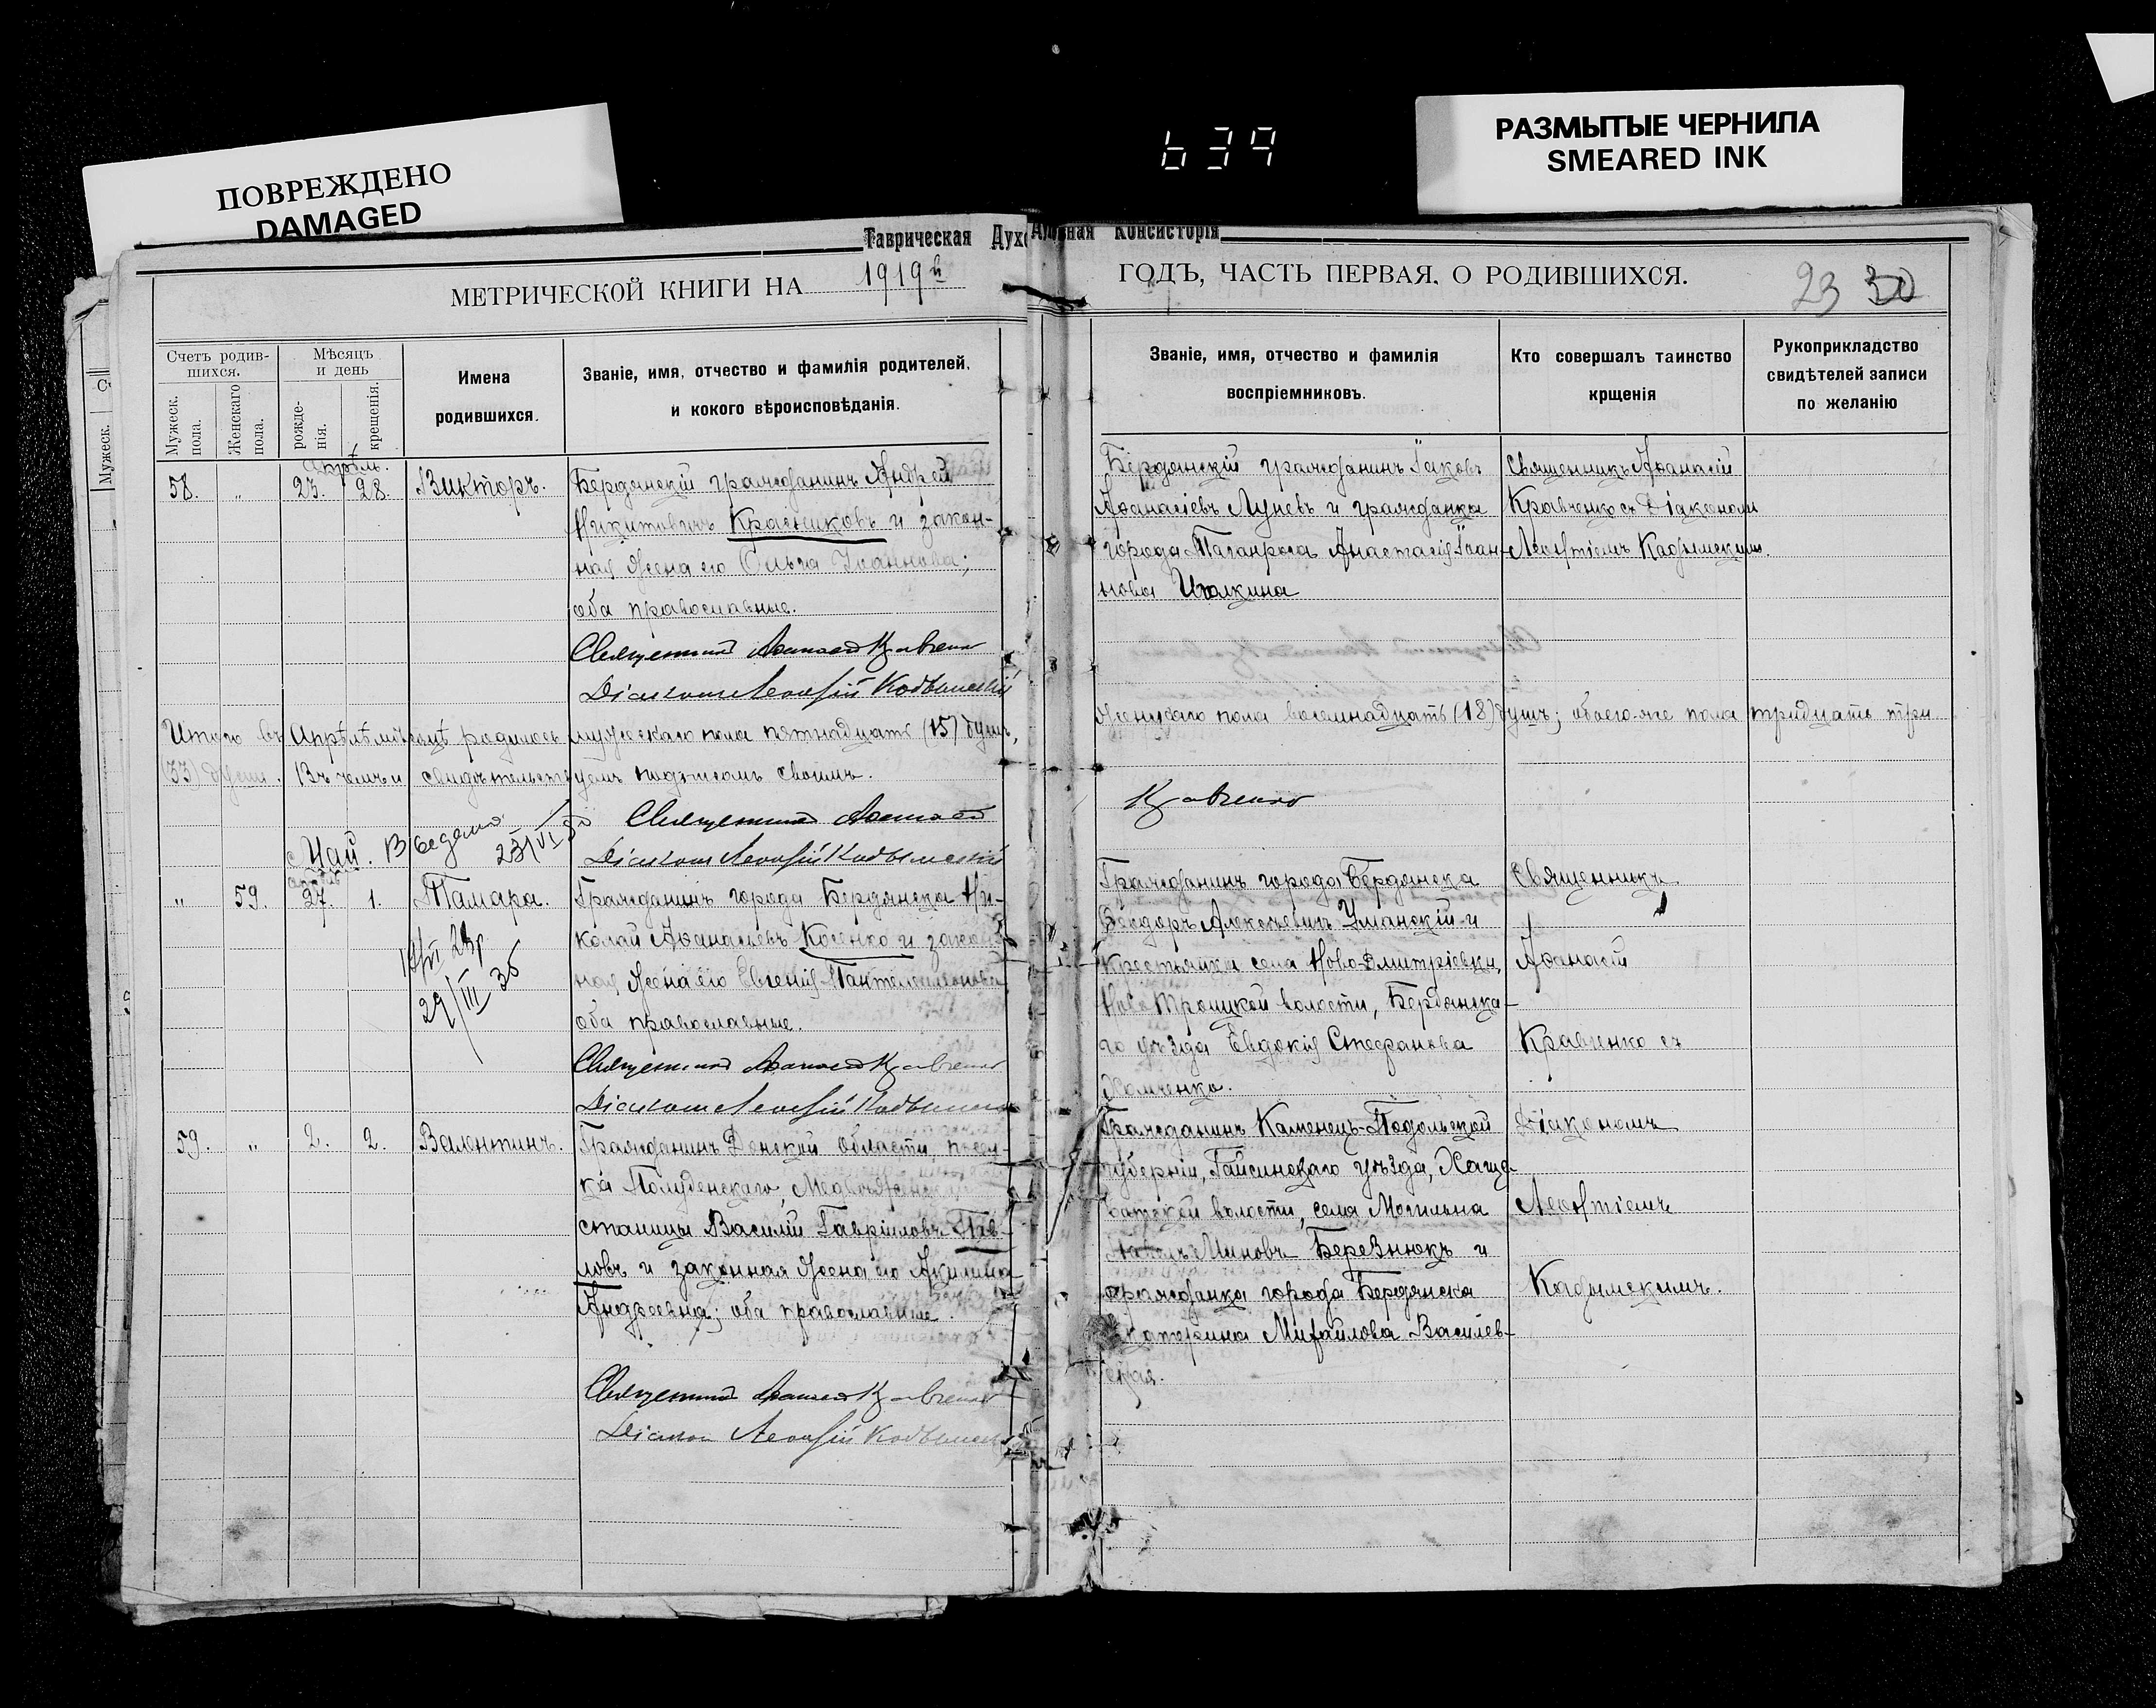 ПОВРЕЖДЕНО
DAMAGED
639
РАЗМЫТЫЕ ЧЕРНИЛА
SMEARED INK
Таврическая Духовная Консисторія
МЕТРИЧЕСКОЙ КНИГИ НА 1919й
ГОДЪ, ЧАСТЬ ПЕРВАЯ, О РОДИВШИХСЯ.
23 30
Счетъ родив-
шихся.
Мужеск.
пола.
Женскаго
пола.
Мѣсяцъ
и день
рожде-
нія.
крещенія.
Имена
родившихся.
Званіе, имя, отчество и фамилія родителей,
и кокого вѣроисповѣданія.
Званіе, имя, отчество и фамилія
воспріемниковъ.
Кто совершалъ таинство
крщенія
Рукоприкладство
свидѣтелей записи
по желанію
Мужеск.
Апрѣль.
58. „ 23. 28. Викторъ.
Бердянскій гражданинъ Андрей
Никитовичъ Красниковъ и закон-
ная жена его Ольга Іоаннова;
оба православные.
Священникъ Аѳанасій Кравченко
Діаконъ Леонтій Кадымскій
Бердянскій гражданинъ Іаковъ
Аѳанасіевъ Луневъ и гражданка
города Таганрога Анастасія Іоан-
нова
Священникъ Аѳанасій
Кравченко съ Діакономъ
Леонтіемъ Кадымскимъ.
Итого въ Апрѣлѣ мѣсяцѣ родилось мужескаго пола пятнадцать (15) душъ,
женскаго пола восемнадцать (18) душъ; обоего-же пола тридцать три
(33) души. Въ чемъ и свидѣтельствуемъ подписомъ своимъ.
Священникъ Аѳанасій
Кравченко
Діаконъ Леонтій Кадымскій
Май. Выдано
23/VI
апрѣль
„ 59. 27. 1. Тамара.
29/III 35
Гражданинъ города Бердянска Ни-
колай Аѳанасіевъ Косенко и закон-
ная жена его Евгенія Пантелеимонова
оба православные.
Священникъ Аѳанасій Кравченко
Діаконъ Леонтій Кадымскій
Гражданинъ города Бердянска
Ѳеодоръ Алексѣевичъ Уманскій и
крестьянка села Ново-Дмитріевки,
Ново Троицкой волости, Бердянска-
го уѣзда Евдокія Стефанова
Хомченко.
Священникъ
Аѳанасій
Кравченко съ
59. „ 2. 2. Валентинъ.
Гражданинъ Донской области, посел-
ка Полуденскаго,
станицы Василій Гавріиловъ Пав-
ловъ и законная жена его Акилина
Андреевна; оба православные.
Священникъ Аѳанасій Кравченко
Діаконъ Леонтій Кадымскій
Гражданинъ Каменецъ-Подольской
губерніи, Гайсинскаго уѣзда, Хаще-
ватской волости, села Могильна
Миновъ Березнюкъ и
гражданка города Бердянска
Екатерина Михайлова Василев-
ская.
Діакономъ
Леонтіемъ
Кадымскимъ.